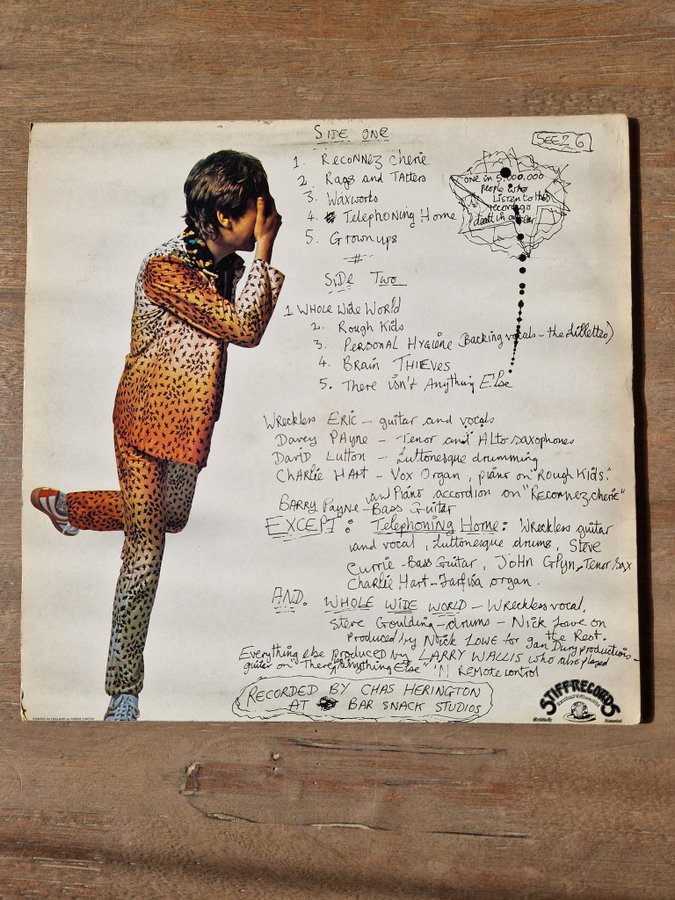 SIDE ONE
SEEZ 6
1. Reconnez cherie
2. Rags and Tatters
3. Waxworks
4. Telephoning Home
5. Grown ups
one in 5,000,000
people who
Listen to this
record go
death in
SIDE TWO
1 Whole Wide World
2. Rough Kids
3. Personal Hygiene (Backing vocals - the Lillettes)
4. Brain Thieves
5. There isn't Anything Else
Wreckless Eric - guitar and vocals
Davey Payne - Tenor and Alto saxophones
David Lutton - Luttonesque drumming
Charlie Hart - Vox Organ, piano on "Rough Kids".
and Piano accordion on "Reconnez cherie"
Barry Payne - Bass Guitar
EXCEPT: Telephoning Home: Wreckless guitar
and vocal, Luttonesque drums, Steve
Currie - Bass Guitar, John Glyn, Tenor Sax
Charlie Hart - Farfisa organ.
AND. WHOLE WIDE WORLD - Wreckless vocal,
Steve Goulding - drums - Nick Lowe on
the Rest.
Produced by Nick Lowe for
Everything else produced by LARRY WALLIS who also played
Ian Dury productions -
guitar on "There isn't Anything Else" 'N REMOTE control
RECORDED BY CHAS HERINGTON
AT BAR SNACK STUDIOS
STIFF RECORDS
PRINTED IN ENGLAND